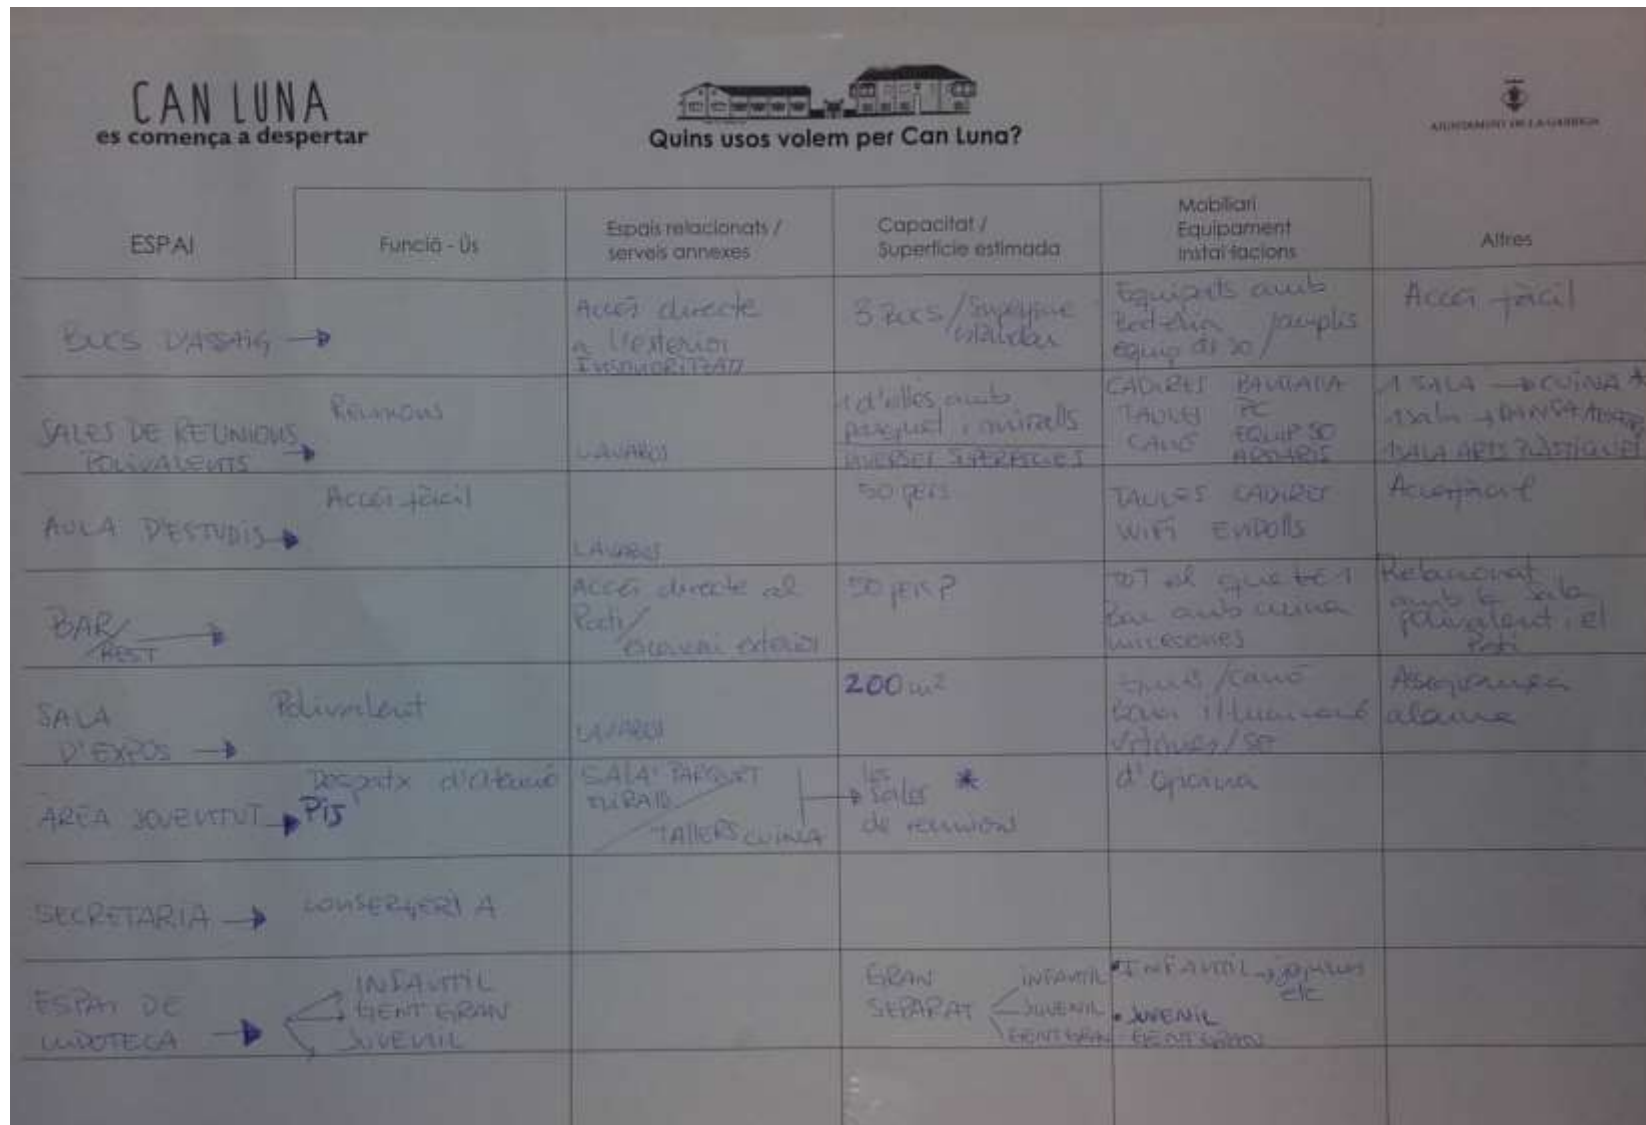 CAN LUNA
es comença a despertar
Quins usos volem per Can Luna?
AJUNTAMENT DE LA GARRIGA
ESPAI
Funció - Ús
Espais relacionats /
serveis annexes
Capacitat /
Superfície estimada
Mobiliari
Equipament
Instal·lacions
Altres
BUCS D'ASSAIG →
Accés directe
a l'exterior
INSONORITZAT
3 BUCS /
Equipats amb
bateria / amplis
equip de so /
Accés fàcil
SALES DE REUNIONS
POLIVALENTS →
Reunions
LAVABOS
1 d'elles amb
parquet i miralls
DIVERSES SUPERFICIES
CADIRES
TAULES PC
CANÓ EQUIP SO
ARMARIS
1 SALA → CUINA *
1 sala → DANSA
1 SALA ARTS PLÀSTIQUES
AULA D'ESTUDIS →
Accés fàcil
LAVABOS
50 pers
TAULES CADIRES
WIFI ENDOLLS
Accés fàcil
BAR/
REST →
Accés directe al
Pati/
exterior
50 pers?
TOT el que té 1
bar amb cuina
Relacionat
amb la sala
polivalent i el
Pati
SALA
D'EXPOS →
Polivalent
LAVABOS
200 m²
/canó
alarma
ÀREA JOVENTUT →
Despatx d'atenció
PIS
SALA PARQUET
MIRALLS
TALLERS CUINA
→ les *
sales
de reunions
d'oficina
SECRETARIA →
CONSERGERIA
ESPAI DE
LUDOTECA →
INFANTIL
GENT GRAN
JUVENIL
GRAN
SEPARAT
INFANTIL
JUVENIL
GENT GRAN
• INFANTIL → joguines
etc
• JUVENIL
GENT GRAN